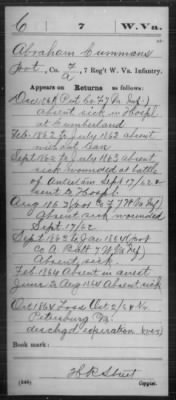 C 7 W. Va.
Abraham Cummans
Pvt., Co. F/A, 7 Reg't W. Va. Infantry.
Appears on Returns as follows:
Dec 1861 (Pvt Co F 7 Va Inf)
absent sick in Hospl
at Cumberland
Feb. 1862 to July 1862 absent
without leave
Sept 1862 to July 1863 absent
sick wounded at battle
of Antietam Sept 17/62 &
sent to Hospl.
Aug 1863 (Pvt Co F 7 W Va Inf)
Absent sick wounded
Sept. 17/62
Sept. 1863 to Jan 1864 (Pvt
Co A Batt 7 W Va Inf)
Absent sick
Feb 1864 Absent in arrest
June & Aug 1864 Absent sick
Oct 1864 Loss Oct
Petersburg Va
dischgd expiration (over)
Book mark:
(546) Copyist.